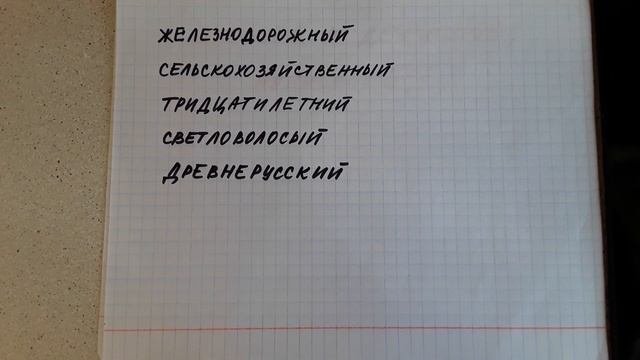 ЖЕЛЕЗНОДОРОЖНЫЙ
СЕЛЬСКОХОЗЯЙСТВЕННЫЙ
ТРИДЦАТИЛЕТНИЙ
СВЕТЛОВОЛОСЫЙ
ДРЕВНЕРУССКИЙ